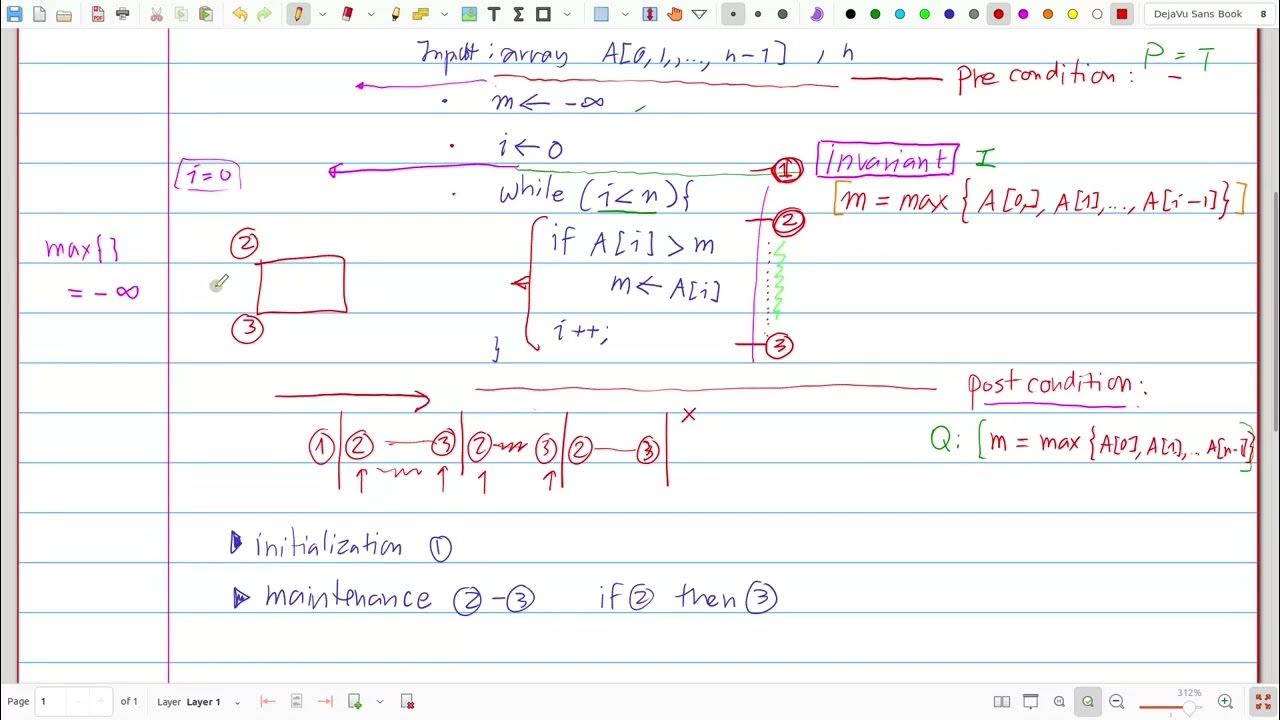 DejaVu Sans Book 8
Input: array A[0,1,,..., n-1] , n
P = T
Pre condition:
m ← -∞
i ← 0
i=0
① invariant I
while (i < n){
[m = max { A[0,], A[1],..., A[i-1]}]
②
② if A[i] > m
max{}
= -∞
m ← A[i]
③ i++;
} ③
post condition:
① ② ③ ② ③ ② ③ ×
Q: [m = max {A[0], A[1],.. A[n-1]}]
initialization ①
maintenance ②-③ if ② then ③
Page 1 of 1 Layer Layer 1 312%